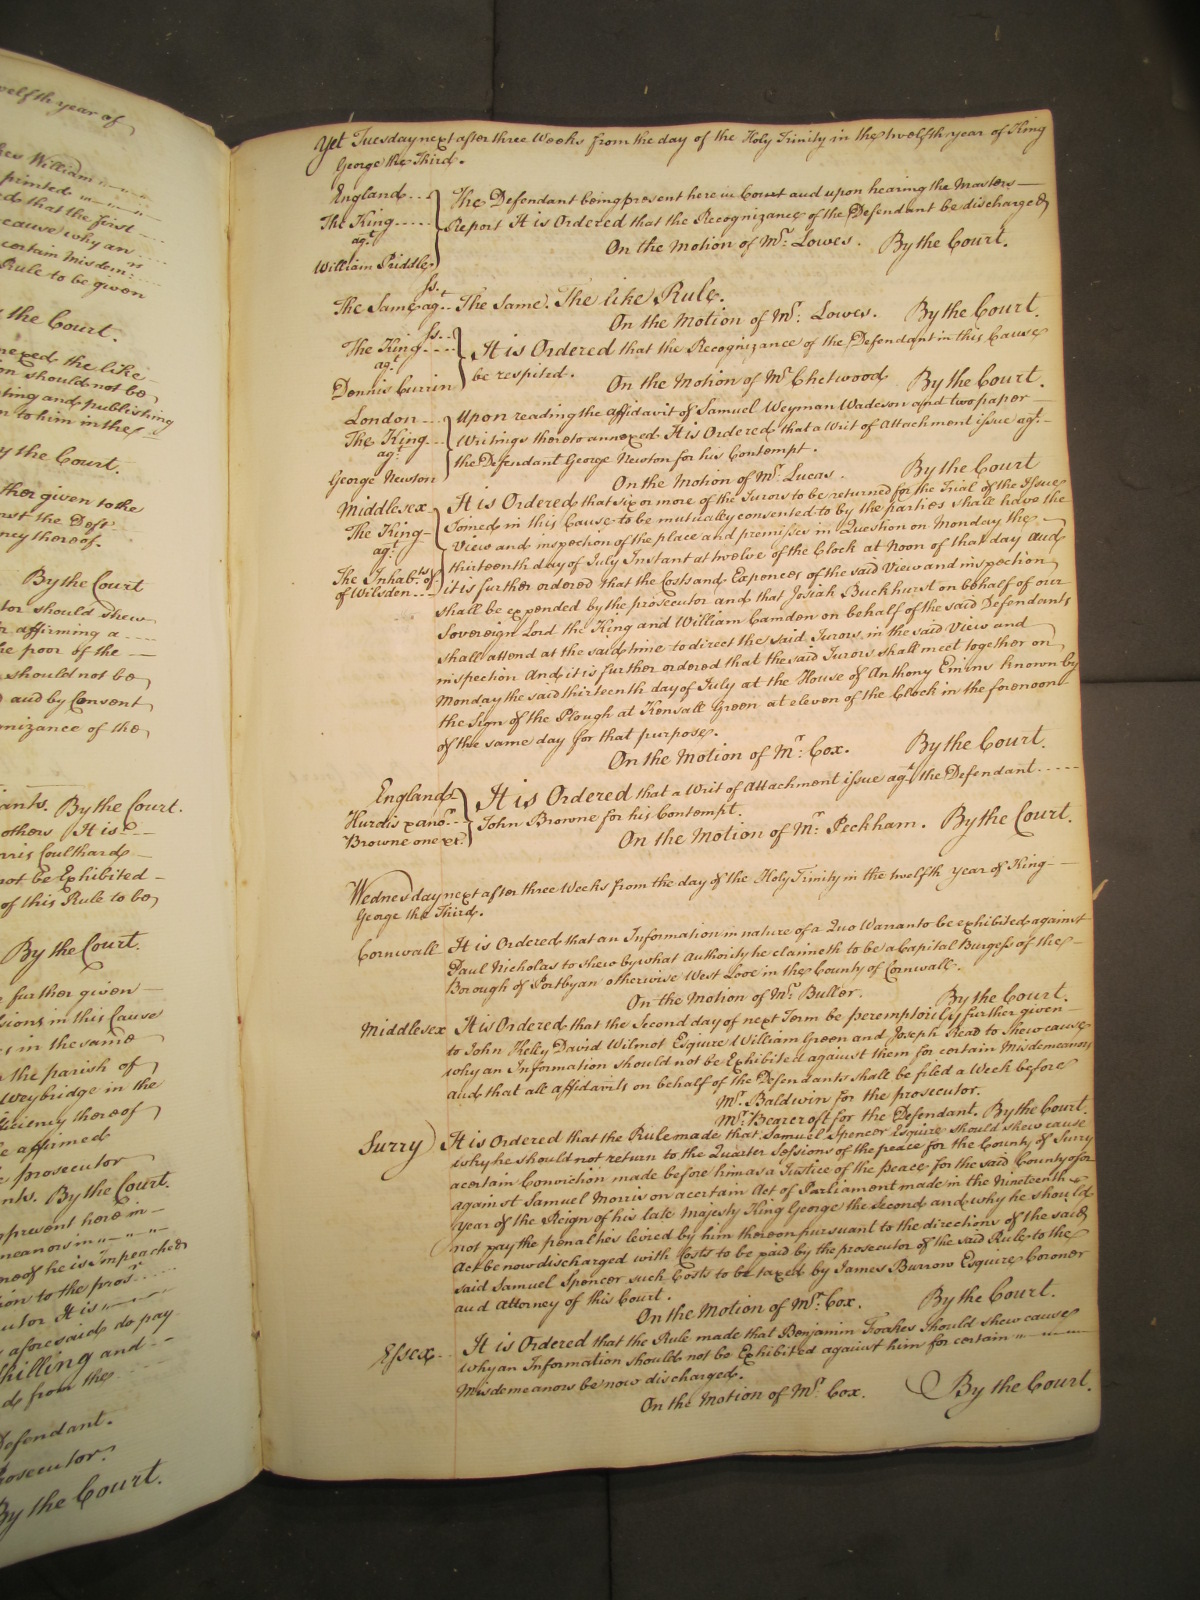 welfth year of
hes William
printed
d that the first
cause why an
certain Misdem:rs
Rule to be given
the Court.
nexed the like
on should not be
ting and publishing
n to him in the
y the Court.
ther given to the
nst the Deft
ncy thereof.
By the Court
tor should shew
r affirming a
he poor of the
should not be
d and by Consent
nizance of the
ants. By the Court.
others It is
rris Coulthard
not be Exhibited
of this Rule to be
By the Court.
further given
sions in this Cause
in the same
the parish of
Weybridge in the
ficiency thereof
e affirmed
prosecutor
nts. By the Court.
present here in
meanors in
reof he is Impeached
ion to the pros.r
utor It is
aforesaid do pay
hilling and
d from the
Defendant.
rosecutor.
By the Court.
Yet Tuesday next after three Weeks from the day of the Holy Trinity in the twelfth year of King
George the Third.
England The Defendant being present here in Court and upon hearing the Masters
The King Report It is Ordered that the Recognizance of the Defendant be discharged
agt On the Motion of Mr: Lowes. By the Court.
William Priddle
ss.
The Same agt The Same. The like Rule.
On the Motion of Mr: Lowes. By the Court.
ss.
The King It is Ordered that the Recognizance of the Defendant in this Cause
agt be respited.
Dennis Currin On the Motion of Mr Chetwood By the Court.
London Upon reading the affidavit of Samuel Weyman Wadeson and two paper
The King Writings thereto annexed It is Ordered that a Writ of Attachment issue agt.
agt the Defendant George Newton for his Contempt.
George Newton On the Motion of Mr: Lucas. By the Court
Middlesex It is Ordered that six or more of the Jurors to be returned for the Trial of the Issue
The King Joined in this Cause to be mutually consented to by the parties shall have the
agt View and inspection of the place and premisses in Question on Monday the
thirteenth day of July Instant at twelve of the Clock at Noon of that day and
The Inhab:ts of it is further ordered that the Costs and Expences of the said View and inspection
of Wilsden shall be expended by the prosecutor and that Josiah Buckhurst on behalf of our
Sovereign Lord the King and William Camden on behalf of the said Defendants
shall attend at the said time to direct the said Jurors in the said View and
inspection And it is further ordered that the said Jurors shall meet together on
Monday the said thirteenth day of July at the House of Anthony Emins known by
the Sign of the Plough at Kensall Green at eleven of the Clock in the forenoon
of the same day for that purpose.
On the Motion of Mr: Cox. By the Court.
England It is Ordered that a Writ of Attachment issue agt the Defendant
Hurdis & ano:r John Browne for his Contempt.
Browne one &c. On the Motion of Mr: Peckham. By the Court.
Wednesday next after three Weeks from the day of the Holy Trinity in the twelfth year of King
George the Third.
Cornwall It is Ordered that an Information in nature of a Quo Warranto be exhibited against
Paul Nicholas to shew by what Authority he claimeth to be a Capital Burgess of the
Borough of Portbyan otherwise West Looe in the County of Cornwall.
On the Motion of Mr: Buller. By the Court.
Middlesex It is Ordered that the Second day of next Term be peremptorily further given
to John Kelly David Wilmot Esquire William Green and Joseph Read to shew cause
why an Information should not be Exhibited against them for certain Misdemeanors
and that all affidavits on behalf of the Defendants shall be filed a Week before
Mr: Baldwin for the prosecutor.
Mr: Bearcroft for the Defendant. By the Court.
Surry It is Ordered that the Rule made that Samuel Spencer Esquire should shew cause
why he should not return to the Quarter Sessions of the peace for the County of Surry
a certain Conviction made before him as a Justice of the Peace for the said County of or
against Samuel Morris on a certain Act of Parliament made in the Nineteenth
year of the Reign of his late Majesty King George the Second and why he should
not pay the penalties levied by him thereon pursuant to the directions of the said
Act be now discharged with Costs to be paid by the prosecutor of the said Rule to the
said Samuel Spencer such Costs to be taxed by James Burrow Esquire Coroner
and Attorney of this Court.
On the Motion of Mr: Cox. By the Court.
Essex It is Ordered that the Rule made that Benjamin Foakes should shew cause
why an Information should not be Exhibited against him for certain
Misdemeanors be now discharged.
On the Motion of Mr: Cox. By the Court.